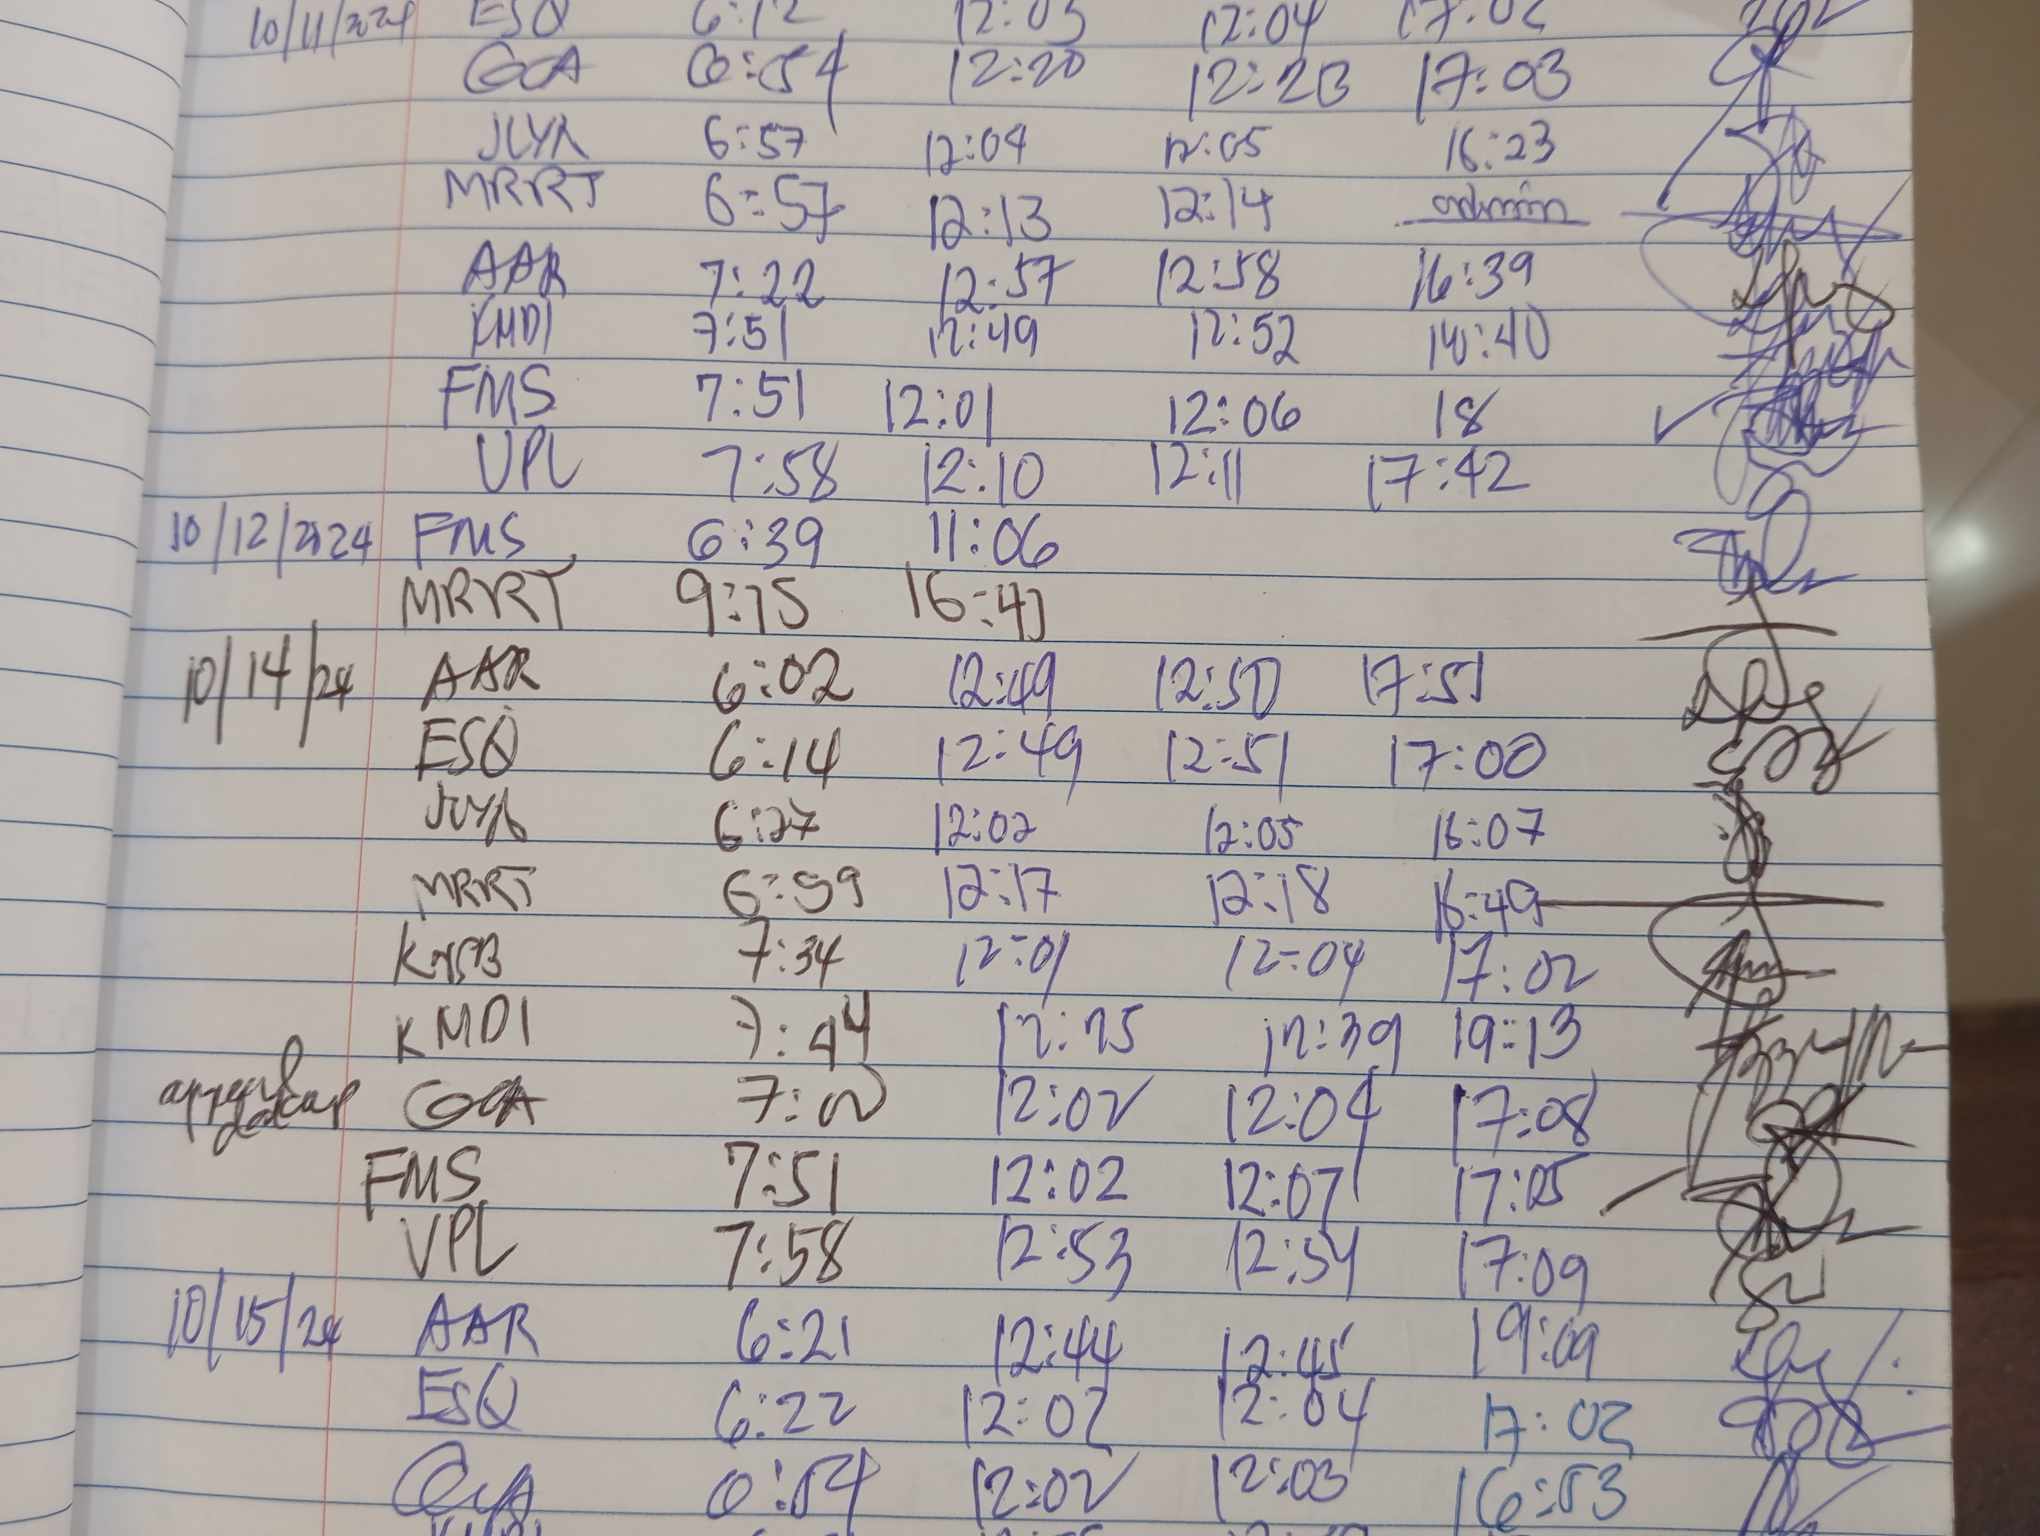 10/11/2024 ESQ 6:12 12:03 12:04 17:02
GCA 6:54 12:20 12:23 17:03
JLYA 6:57 12:04 12:05 16:23
MRRT 6:57 12:13 12:14 admin
AAR 7:22 12:57 12:58 16:39
KMDI 7:51 12:49 12:52 16:40
FMS 7:51 12:01 12:06 18
VPL 7:58 12:10 12:11 17:42
10/12/2024 FMS 6:39 11:06
MRRT 9:15 16:41
10/14/24 AAR 6:02 12:49 12:50 17:51
ESQ 6:14 12:49 12:51 17:00
JLYA 6:27 12:02 12:05 16:07
MRRT 6:59 12:17 12:18 16:49
7:34 12:01 12:04 17:02
KMDI 7:44 12:25 12:39 19:13
GCA 7:00 12:02 12:04 17:08
FMS 7:51 12:02 12:07 17:05
VPL 7:58 12:53 12:54 17:09
10/15/24 AAR 6:21 12:44 12:45 19:09
ESQ 6:22 12:02 12:04 17:02
GCA 6:54 12:02 12:03 16:53